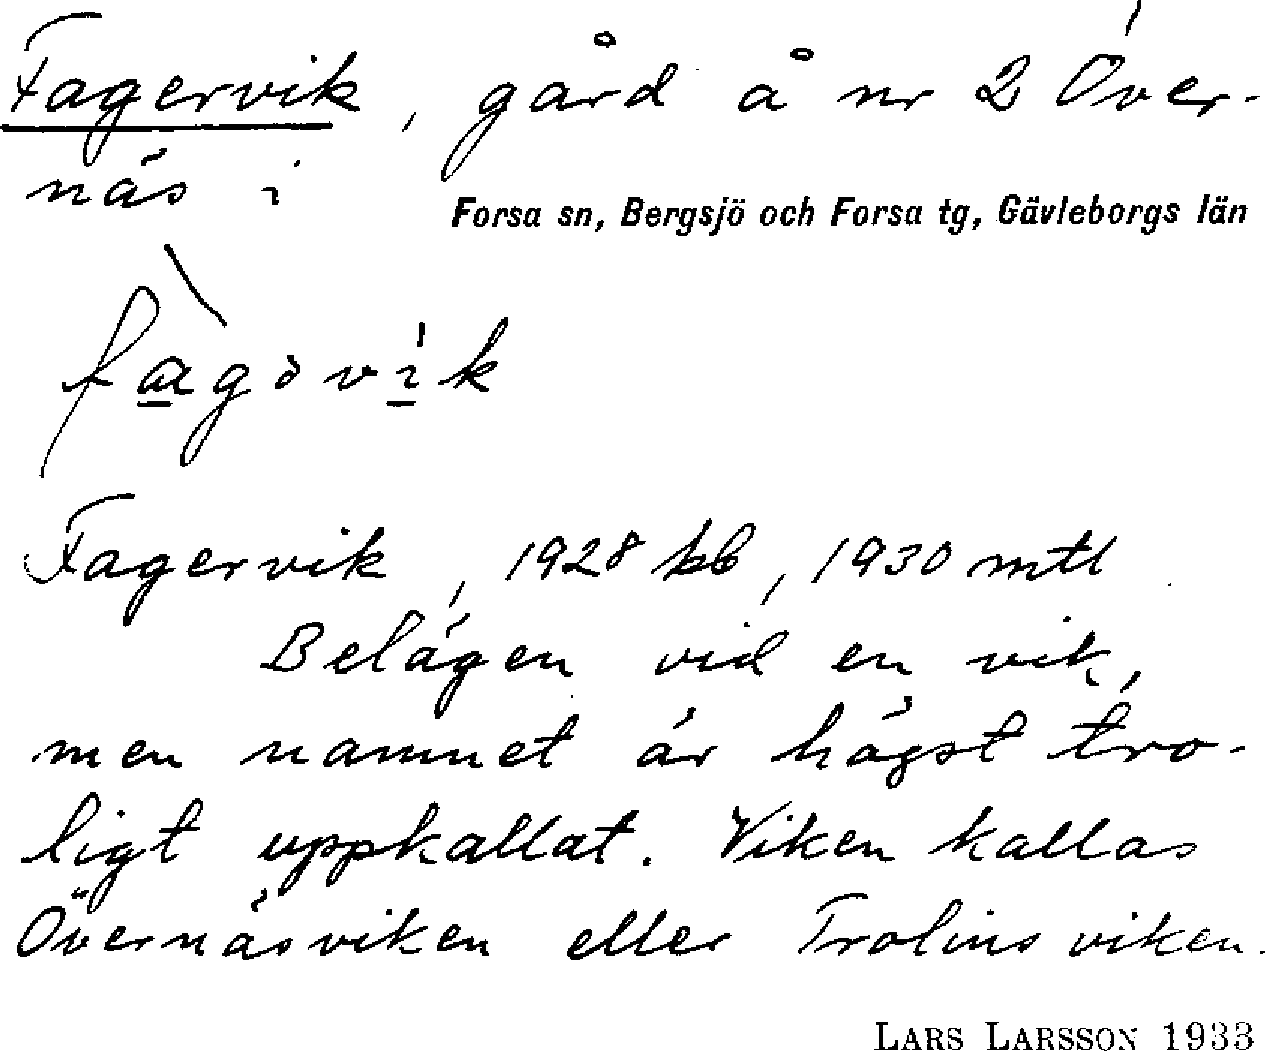 Fagervik, gård å nr 2 Över-
näs i
Forsa sn, Bergsjö och Forsa tg, Gävleborgs län
fàgəvik
Fagervik, 1928 kb, 1930 mtl
Belägen vid en vik,
men namnet är högst tro-
ligt uppkallat. Viken kallas
Övernäsviken eller Trolins viken.
LARS LARSSON 1933